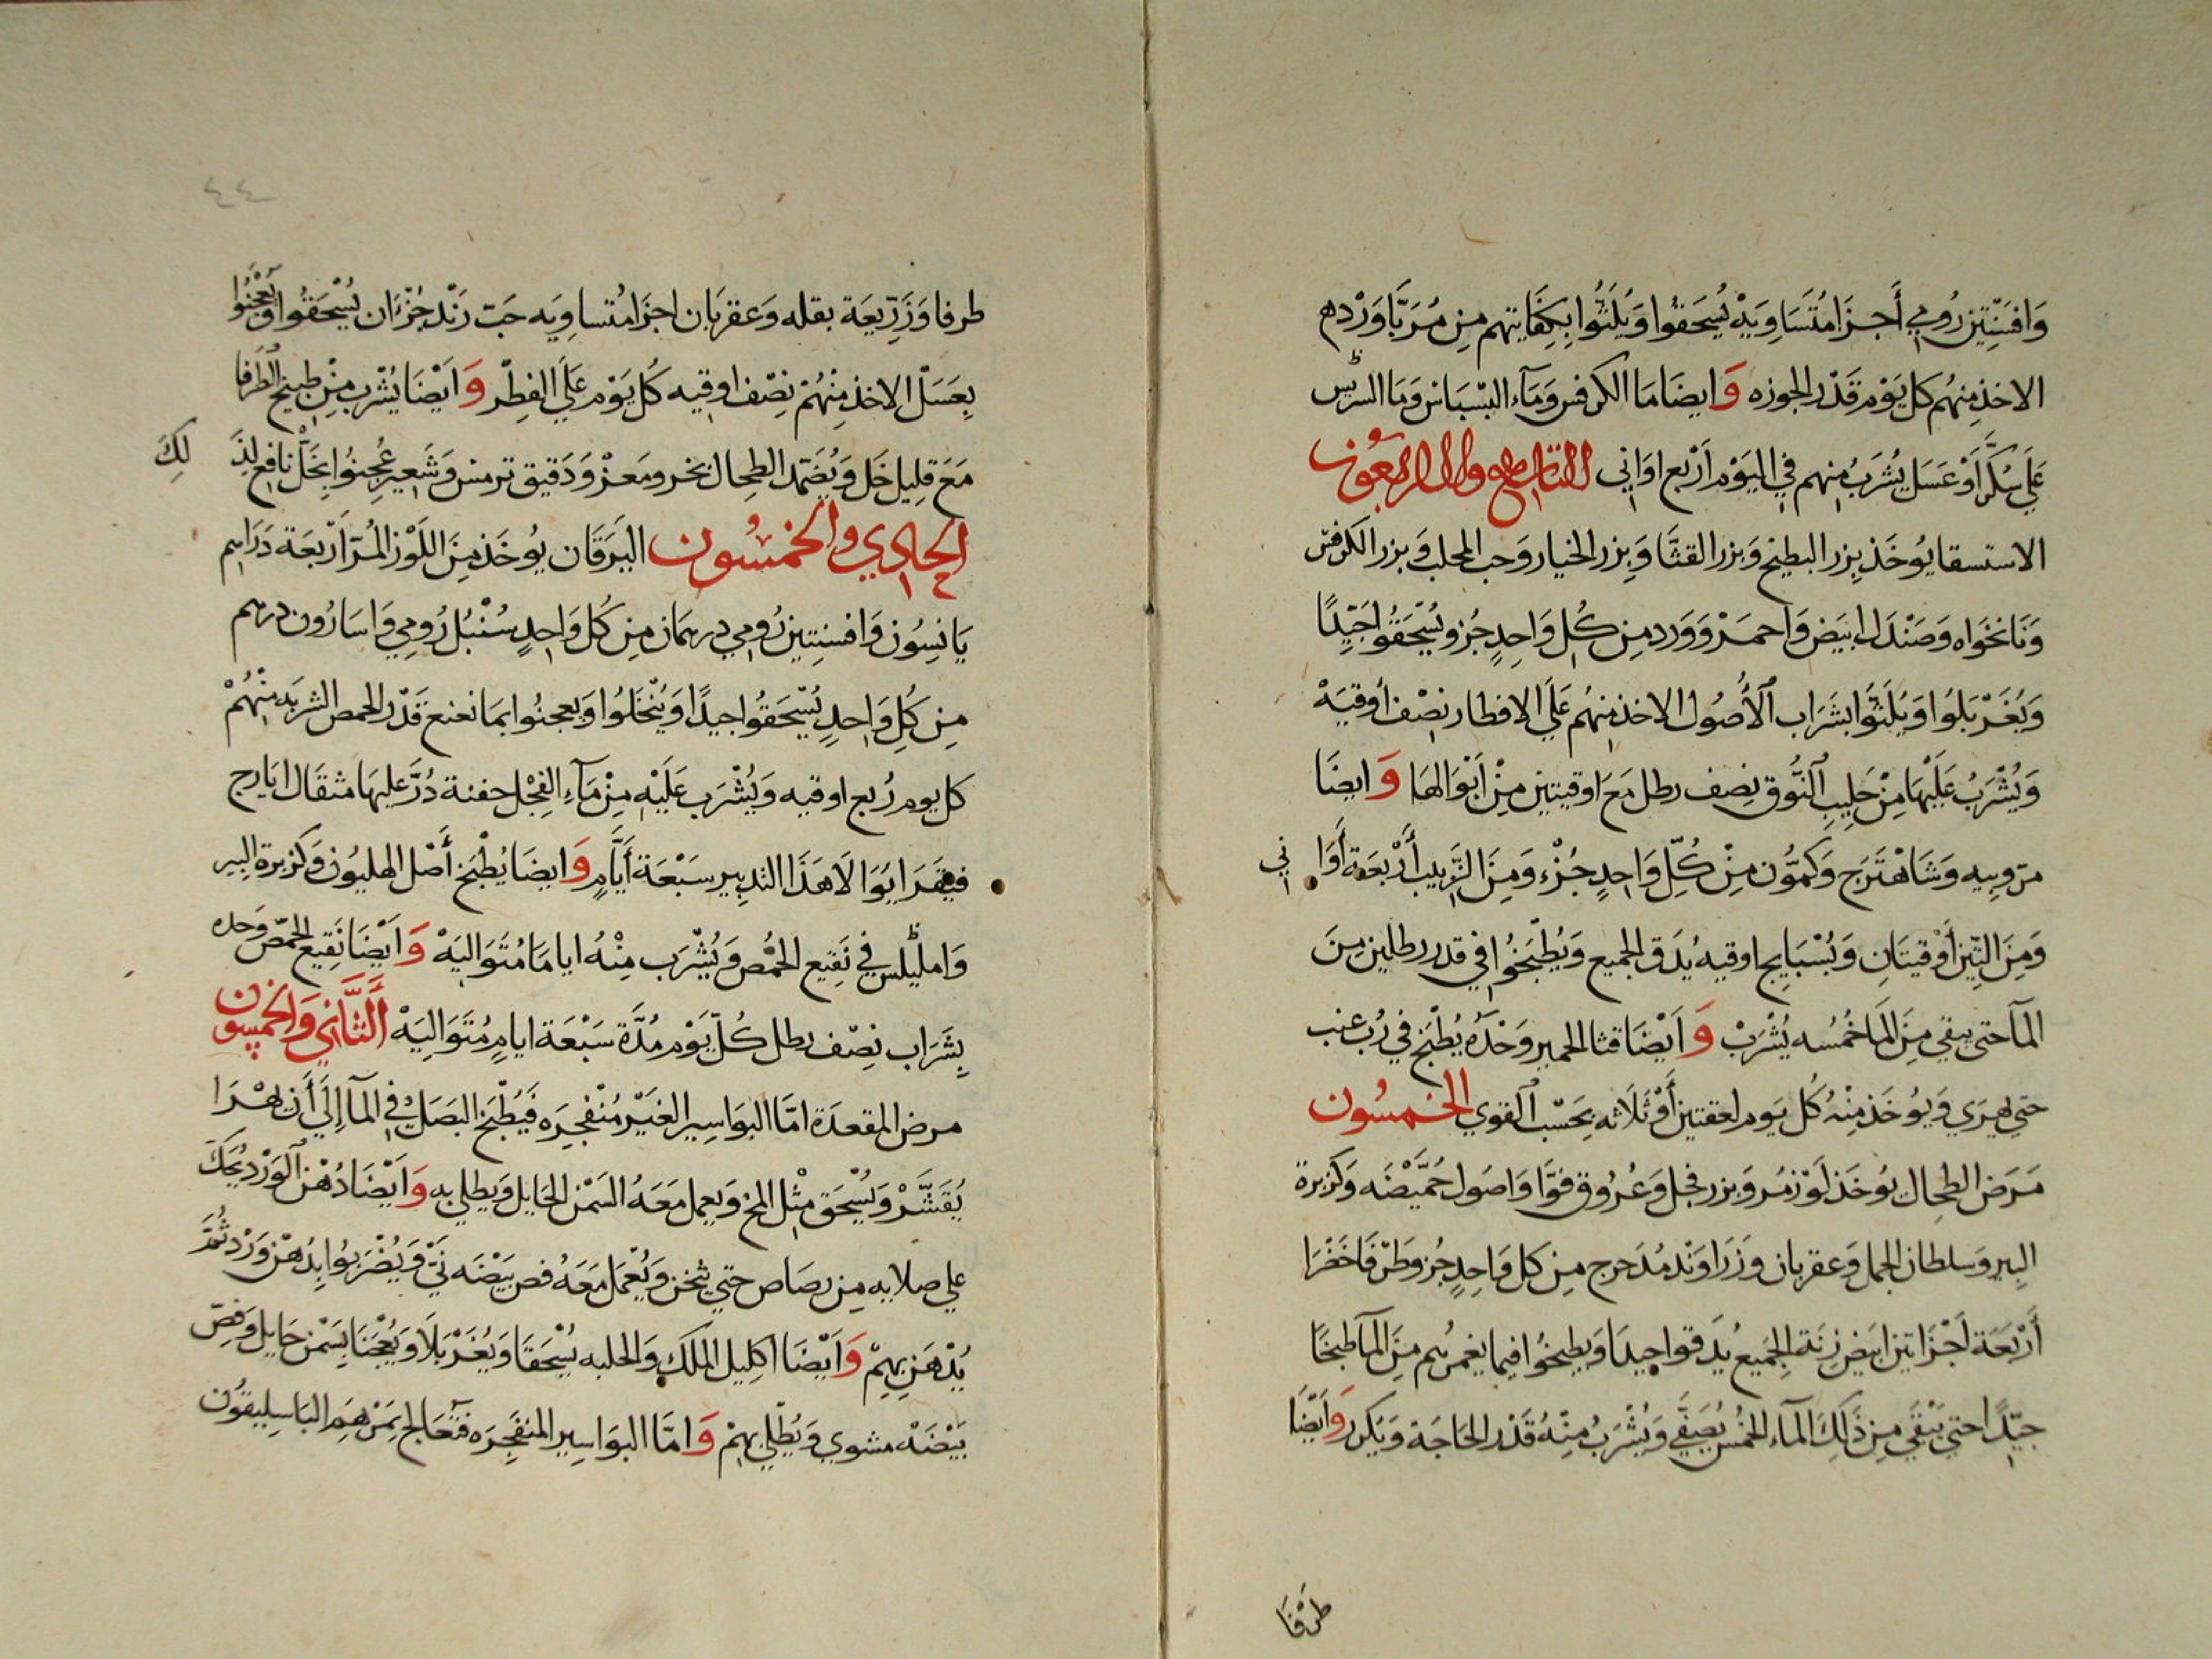 وَافسَنْتِين رُومي أَجزَا مُتَسَاوِيَهْ يُسحَقوُا وَيُلَتُّوا بِكِفَايتهم مِن مُرَبَّا وَرْدهم
الاخذ مِنهُم كل يَوْم قَدْر الجوزه وَايضَا مَا الكرفس وَمَآء البسْبَاس وَمَا السريس
عَلَي سُكَّر أَوْ عَسَل يُشرَبُ مِنهم في اليَوْم أرْبع اوَاني التاسع والاربعون
الاستسقا يُوخَذ بِزر البطيخ وَبزر القثَّا وَبِزر الخيار وَحب المحلب وَبزر الكرفس
وَنَانخوَاه وَصَنْدَل ابيَض وَاحمَرْ وَوَرد مِن كُلِ وَاحِدٍ جُزو يُسْحَقُوا جَيِّدًا
وَيُغَرْبَلوُا وَيُلَتُّوا بشَرَاب اُلأُصُول الاخذ مِنهُم عَلَي الافطار نصْف أوقيَهْ
وَيُشْرَبُ عَلَيْهَا مِنْ حَلِيبِ اُلنُّوق نِصف رطل مَعَ اوقيتين مِنْ أَبْوَالهَا وَايضَا
مرّوِيه وَشَاهْتَرَج وَكَمُّون مِنْ كُلِّ وَاحِدٍ جُزْء وَمِنَ الزَّبيب أَرْبعَة أَوَاني
وَمِنَ التِّين أوْقيتَانِ وَبُسْبَايج اوقيه يُدَق الجميع وَيُطْبَخُوا في قدر رطلين مِنَ
المآ حتى يبقي مِنَ المَا خُمُسُه يُشْرَبْ وَأَيْضَا قثا الحمير وَحْدُه يُطْبَخ في رُب عنب
حتي يهرَي وَيُوخَذ مِنْهُ كُل يَوم لعقتين أَوْ ثَلَاثه بِحَسْب اُلقوي الخمسُون
مَرَض الطحِال يوُخَذ لَوْز مُر وَبزر فجل وَعُرُوق فوَّا وَاصُول حُمَّيْضَه وَكزبرة
البِير وَسلطان الجبل وَعقربان وَزَرَاوَنْد مُدَحرج مِن كل وَاحِدٍ جُز وَطرّفا خَضْرَا
أَرْبَعَة اَجْزَا تين ابيَض زِنَة الجَمِيع يُدَقوا جيدَا وَيطبخُوا فيما يغمرُهم مِنَ المآ طبخَا
جيّدًا حتى يَبْقَي مِن ذَلِكَ المآء الخمُس يُصَفَّي وَيُشْرَبُ مِنْهُ قَدْر الحَاجَة وَيكرر وَأَيْضَا
طَرْفَا
٤٤
طرفا وَزَرِّيعَة بقله وَعقربَان اجزَا مُتساوِيَه حَبّ رَنْد جُزْءَان يُسْحَقُوا وَيُعْجَنُوا
بِعَسَلْ الاخذ مِنْهُمْ نِصْف اوقيه كُل يَوْم عَلَي الفِطْر وَأيْضَا يُشْرب مِنْ طبيخ الطَرفا
مَعَ قلِيل خَل وَيُضَمّد الطِحال بخرو مَعزْ وَدَقيق ترمس وَشَعير عُجِنوُا بِخَلْ نافع لِذَلِكَ
الحادي والخمسُون اليَرَقَان يُوخَذ مِنَ اللَوْز المُرّ أَرْبعَة دَرَاهِم
يَانِسُون وَافسنِتين رُومي درهمَان مِن كُل وَاحِدٍ سُنْبُل رُومِي وَاسَارُون درهم
مِن كُلِ وَاحِدٍ يُسْحَقُوا جيدًا وَيُنْخَلوُا وَيعجنوُا بمَا نعنع قَدْر الحمص الشربَه مِنْهُمْ
كل يوم رُبع اوقيه وَيُشْرَب عَلَيْهِ مِنْ مَآءِ الفِجْل حفنة دُرَّ عليهَا مثقَال ايَارِج
فيقَرَا يُوَالَا هَذَا التدبِير سَبْعَة أَيَّامٍ وَايضَا يُطْبَخ أَصْل الهليُون وَكزبرة البِير
وَامليلس في نَقِيع الحُمُّص وَيُشْرَب مِنْهُ ايامَا مُتَوَاليَهْ وَأَيْضَا نَقِيع الحمّص وَحده
بِشَرَاب نِصْف رطل كُلّ يَوْم مُدَّة سَبْعَة ايامٍ مُتَوَالِيَهْ اَلثَّانِي وَالخمسُون
مرض المقعدَة امَّا البوَاسِير الغَيْر مُنْفجِرَه فَيُطْبَخ البَصَل في المآ إِلَي أَن يهْرَا
يُقَشَّرْ وَيُسْحَق مثْل المخ وَيعمل مَعَهُ السَمْن الحَايل وَيطلي بِه وَأَيْضَا دُهْن اُلوَرْد يُحَكّ
علي صلايه مِن رصَاص حتي يثخن وَيُعْمَل مَعَهُ فص بَيْضَه نَيّ وَيُضْرَبوُا بِدُهْن وَرْد ثُمَّ
يُدْهَن بِهِمْ وَأَيْضَا اكلِيل المَلَك وَالحلبه يُسْحَقَا وَيُغَرْبَلَا وَيُعْجَنَا بِسَمْن حَايل وَفصّ
بَيْضَهْ مشوي وَيُطْلي بِهِمْ وَامَّا البوَاسِير المنفَجِرَه فَتُعَالج بِمَرْهَم البَاسِلِيقوُن